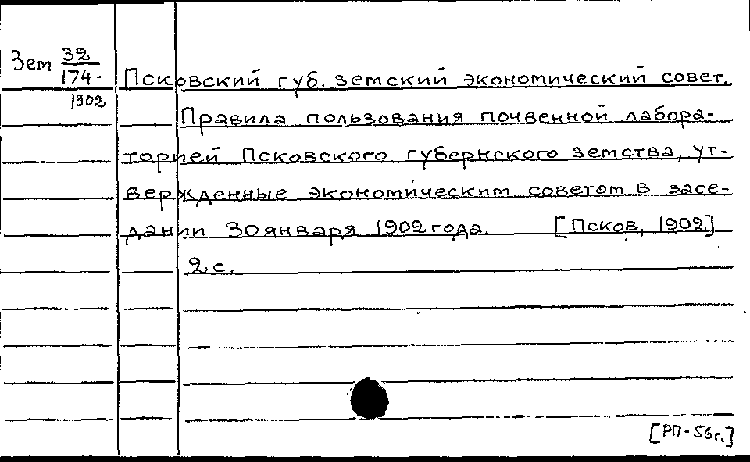 Зем 32
174-
1902
Псковский губ. земский экономический совет.
Правила пользования почвенной лабора-
торией Псковского губернского земства, ут-
вержденные экономическим советом в засе-
дании 30 января 1902 года. [Псков, 1902]
2 с.
[РП-56г.]